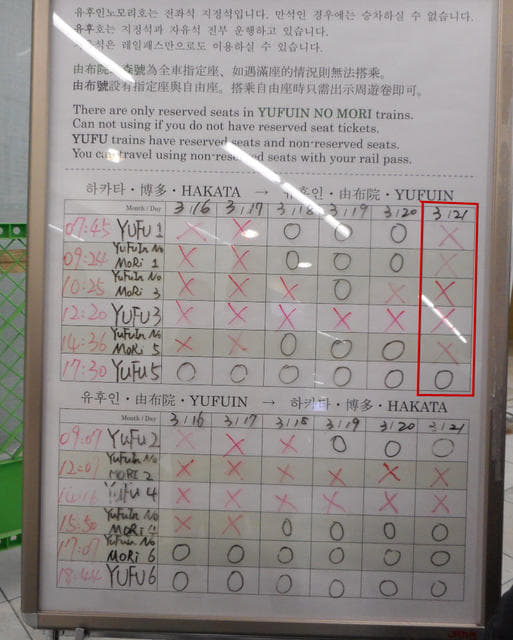 유후인노모리호는 전좌석 지정석입니다. 만석인 경우에는 승차하실 수 없습니다.
유후호는 지정석과 자유석 전부 운행하고 있습니다.
레일패스만으로도 이용하실 수 있습니다.
由布院 森號為全車指定座、如遇滿座的情況則無法搭乘。
由布號設有指定座與自由座。搭乘自由座時只需出示周遊卷即可。
There are only reserved seats in YUFUIN NO MORI trains.
Can not using if you do not have reserved seat tickets.
YUFU trains have reserved seats and non-reserved seats.
You can travel using non-reserved seats with your rail pass.
하카타・博多・HAKATA → 유후인・由布院・YUFUIN
Month / Day 3/16 3/17 3/18 3/19 3/20 3/21
07:45 YUFU 1 X X O O O X
09:24 YUFUIN No MORI 1 X X O O O X
10:25 YUFUIN No MORI 3 X X X O X X
12:20 YUFU 3 X X X X X X
14:36 YUFUIN No MORI 5 X X O O O X
17:30 YUFU 5 O O O O O O
유후인・由布院・YUFUIN → 하카타・博多・HAKATA
Month / Day 3/16 3/17 3/18 3/19 3/20 3/21
09:07 YUFU 2 X X X O O O
12:01 YUFUIN No MORI 2 X X X X X X
14:16 YUFU 4 X X X X X X
15:50 YUFUIN No MORI 4 X X O O O O
17:07 YUFUIN No MORI 6 O O O O O O
18:44 YUFU 6 O O O O O O